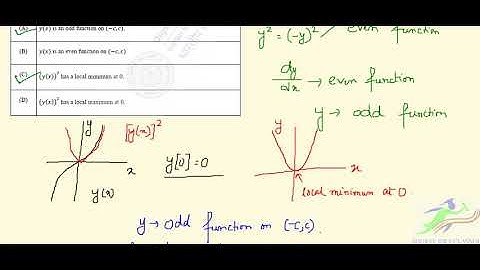 (A) y(x) is an odd function on (−c, c)
(B) y(x) is an even function on (−c, c)
(C) (y(x))² has a local minimum at 0.
(D) (y(x))² has a local maximum at 0.
y² = (−y)² / even function
dy/dx → even function
y → odd function
y
[y(x)]²
x
y(x)
y[0] = 0
y
x
local minimum at 0
y → odd function on (−c, c).